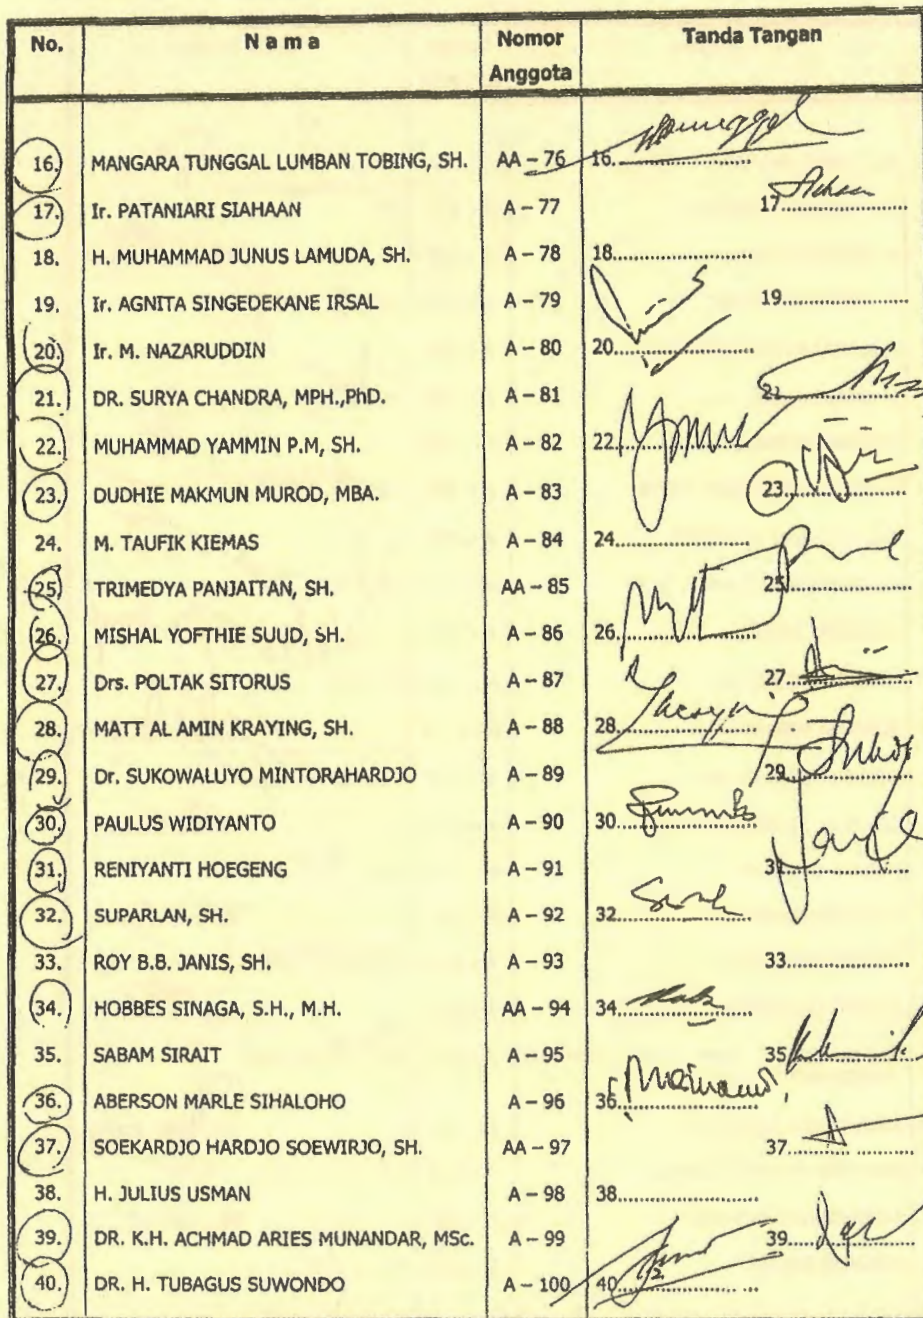 No. Nama Nomor Anggota Tanda Tangan
16. MANGARA TUNGGAL LUMBAN TOBING, SH. AA – 76 16..............................
17. Ir. PATANIARI SIAHAAN A – 77 17..............................
18. H. MUHAMMAD JUNUS LAMUDA, SH. A – 78 18..............................
19. Ir. AGNITA SINGEDEKANE IRSAL A – 79 19..............................
20. Ir. M. NAZARUDDIN A – 80 20..............................
21. DR. SURYA CHANDRA, MPH.,PhD. A – 81 21..............................
22. MUHAMMAD YAMMIN P.M, SH. A – 82 22..............................
23. DUDHIE MAKMUN MUROD, MBA. A – 83 23..............................
24. M. TAUFIK KIEMAS A – 84 24..............................
25. TRIMEDYA PANJAITAN, SH. AA – 85 25..............................
26. MISHAL YOFTHIE SUUD, SH. A – 86 26..............................
27. Drs. POLTAK SITORUS A – 87 27..............................
28. MATT AL AMIN KRAYING, SH. A – 88 28..............................
29. Dr. SUKOWALUYO MINTORAHARDJO A – 89 29..............................
30. PAULUS WIDIYANTO A – 90 30..............................
31. RENIYANTI HOEGENG A – 91 31..............................
32. SUPARLAN, SH. A – 92 32..............................
33. ROY B.B. JANIS, SH. A – 93 33..............................
34. HOBBES SINAGA, S.H., M.H. AA – 94 34..............................
35. SABAM SIRAIT A – 95 35..............................
36. ABERSON MARLE SIHALOHO A – 96 36..............................
37. SOEKARDJO HARDJO SOEWIRJO, SH. AA – 97 37..............................
38. H. JULIUS USMAN A – 98 38..............................
39. DR. K.H. ACHMAD ARIES MUNANDAR, MSc. A – 99 39..............................
40. DR. H. TUBAGUS SUWONDO A – 100 40..............................